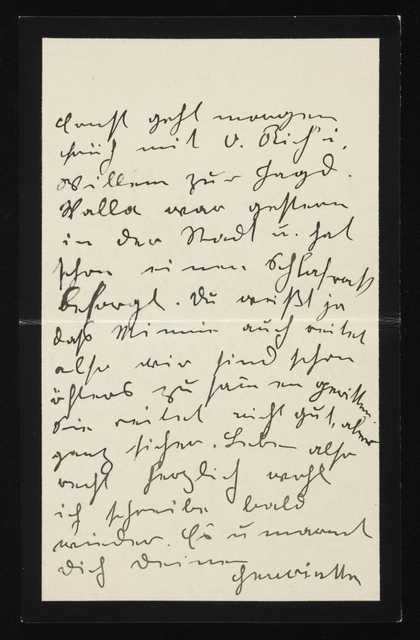 Ernst geht morgen
früh mit O. Rich i.
Willem zur Jagd.
Walla war gestern
in der Stadt u. hat
schon einen Schlafrock
besorgt. Du weißt ja
daß Minnie auch reitet
also wir sind schon
öfters zusammen geritten.
Sie reitet nicht gut, aber
ganz sicher. Lebe also
recht herzlich wohl
ich schreibe bald
wieder. Es umarmt
dich deine
Henriette